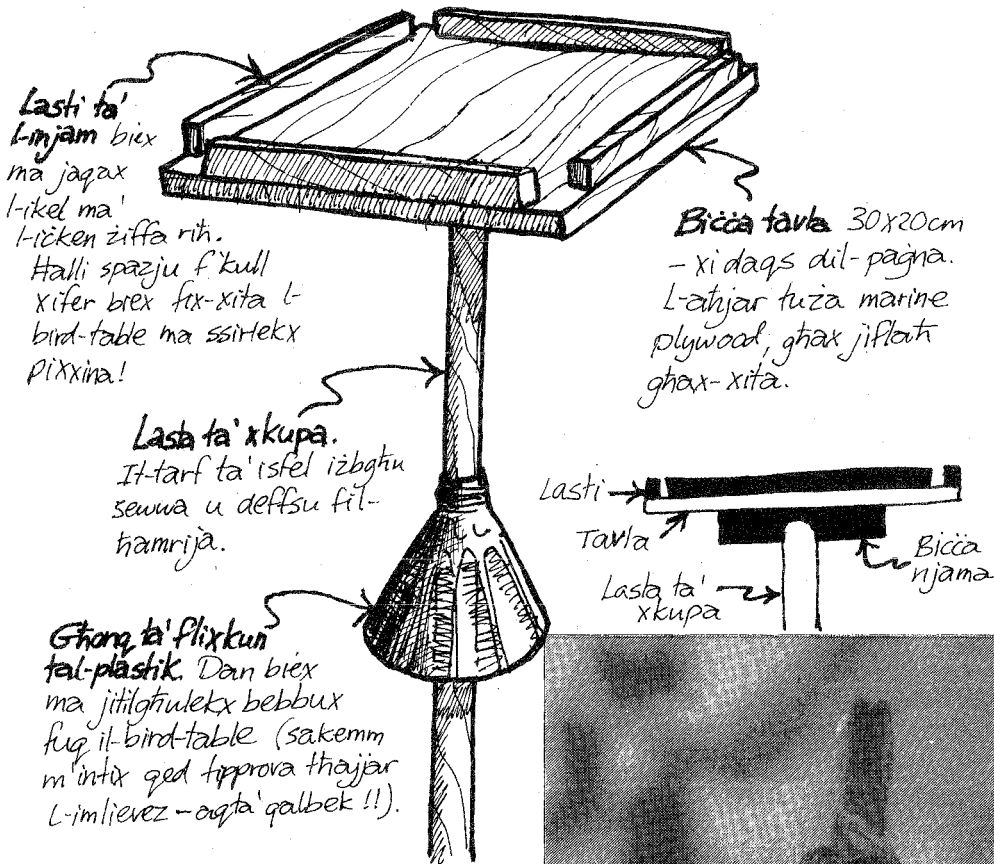 Lasti ta'
l-injam biex
ma jaqax
l-ikel ma'
l-iċken żiffa riħ.
Ħalli spazju f'kull
xifer biex fix-xita l-
bird-table ma ssirlekx
pixxina!
Biċċa tavla 30x20cm
- xi daqs dil-paġna.
L-aħjar tuża marine
plywood, għax jiflaħ
għax-xita.
Lasta ta' xkupa.
It-tarf ta' isfel iżbgħu
sewwa u deffsu fil-
ħamrija.
Għonq ta' flixkun
tal-plastik. Dan biex
ma jitilgħulekx bebbux
fuq il-bird-table (sakemm
m'intix qed tipprova tħajjar
l-imlievez - aqta' qalbek !!).
Lasti
Tavla
Lasta ta'
xkupa
Biċċa
njama